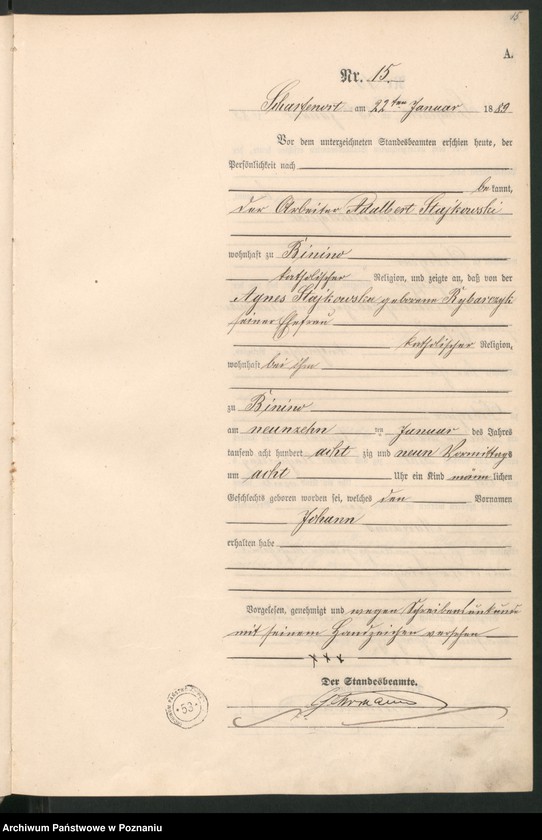 15
A.
Nr. 15.
Scharfenort am 22ten Januar 1889
Vor dem unterzeichneten Standesbeamten erschien heute, der
Persönlichkeit nach
bekannt,
der Arbeiter Adalbert Stajkowski
wohnhaft zu Binino
katholischer Religion, und zeigte an, daß von der
Agnes Stajkowska geborene Rybarczyk
seiner Ehefrau
katholischer Religion,
wohnhaft bei ihm
zu Binino
am neunzehn ten Januar des Jahres
tausend acht hundert acht zig und neun Vormittags
um acht Uhr ein Kind männlichen
Geschlechts geboren worden sei, welches den Vornamen
Johann
erhalten habe
Vorgelesen, genehmigt und wegen Schreibensunkunde
mit seinem Handzeichen versehen
xxx
Der Standesbeamte.
53
Archiwum Państwowe w Poznaniu